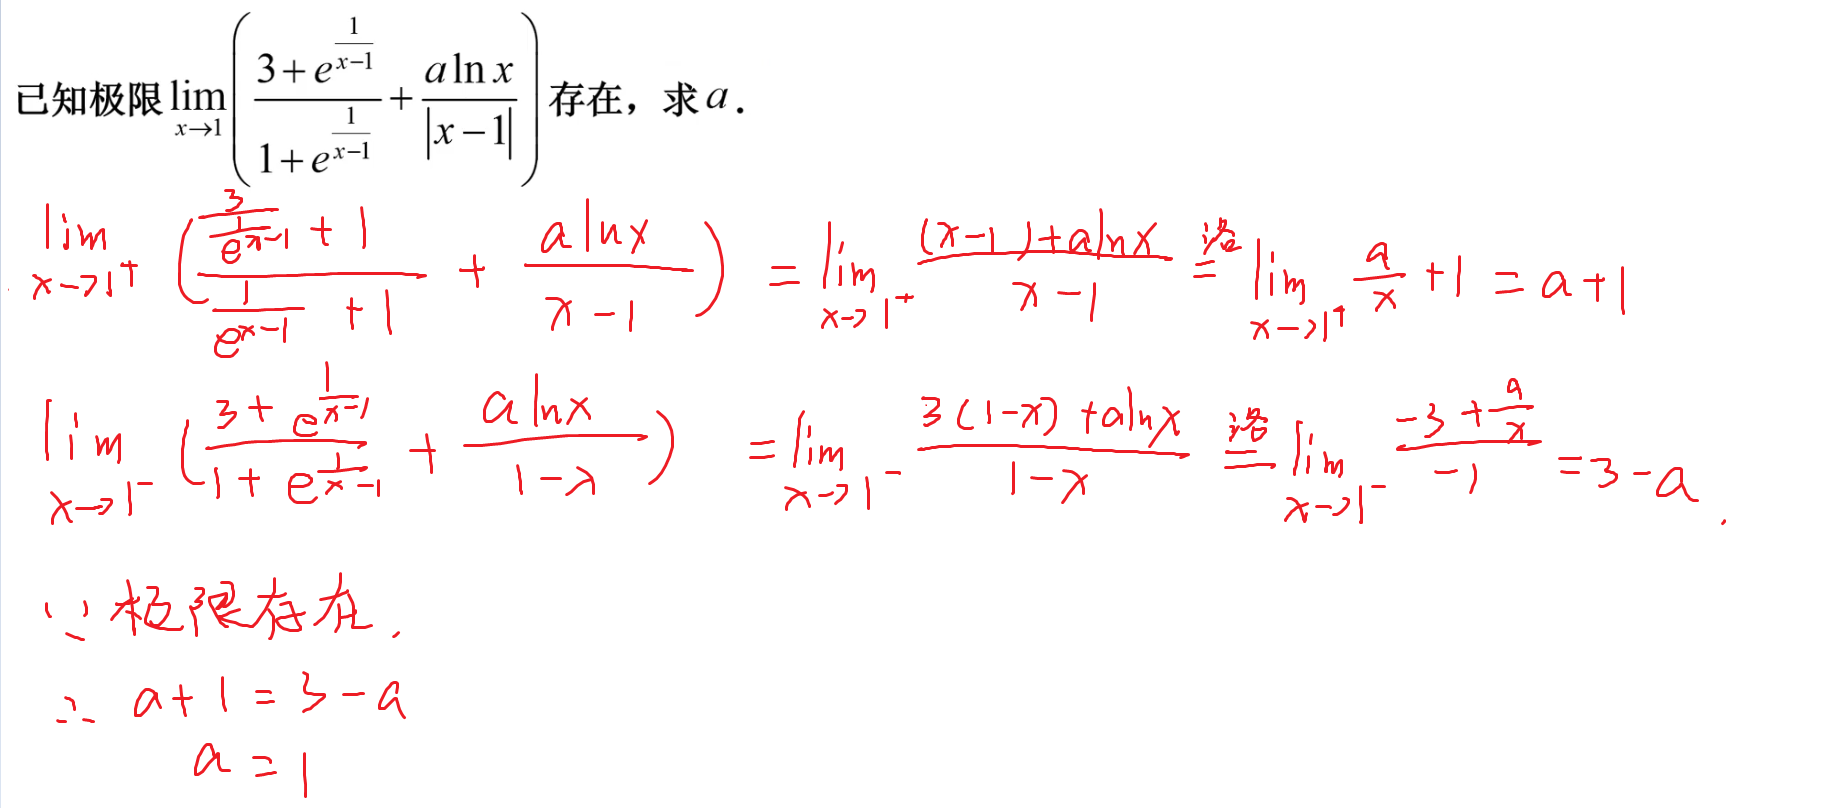 已知极限 lim_{x→1} ( (3+e^{1/(x−1)})/(1+e^{1/(x−1)}) + (a ln x)/|x−1| ) 存在，求 a．
lim_{x→1⁺} ( (3/e^{1/(x−1)} + 1)/(1/e^{x−1} + 1) + (a ln x)/(x−1) ) = lim_{x→1⁺} ((x−1)+a ln x)/(x−1) 洛= lim_{x→1⁺} a/x + 1 = a+1
lim_{x→1⁻} ( (3+e^{1/(x−1)})/(1+e^{1/(x−1)}) + (a ln x)/(1−x) ) = lim_{x→1⁻} (3(1−x)+a ln x)/(1−x) 洛= lim_{x→1⁻} (−3+a/x)/(−1) = 3−a.
∵ 极限存在.
∴ a+1=3−a
a=1